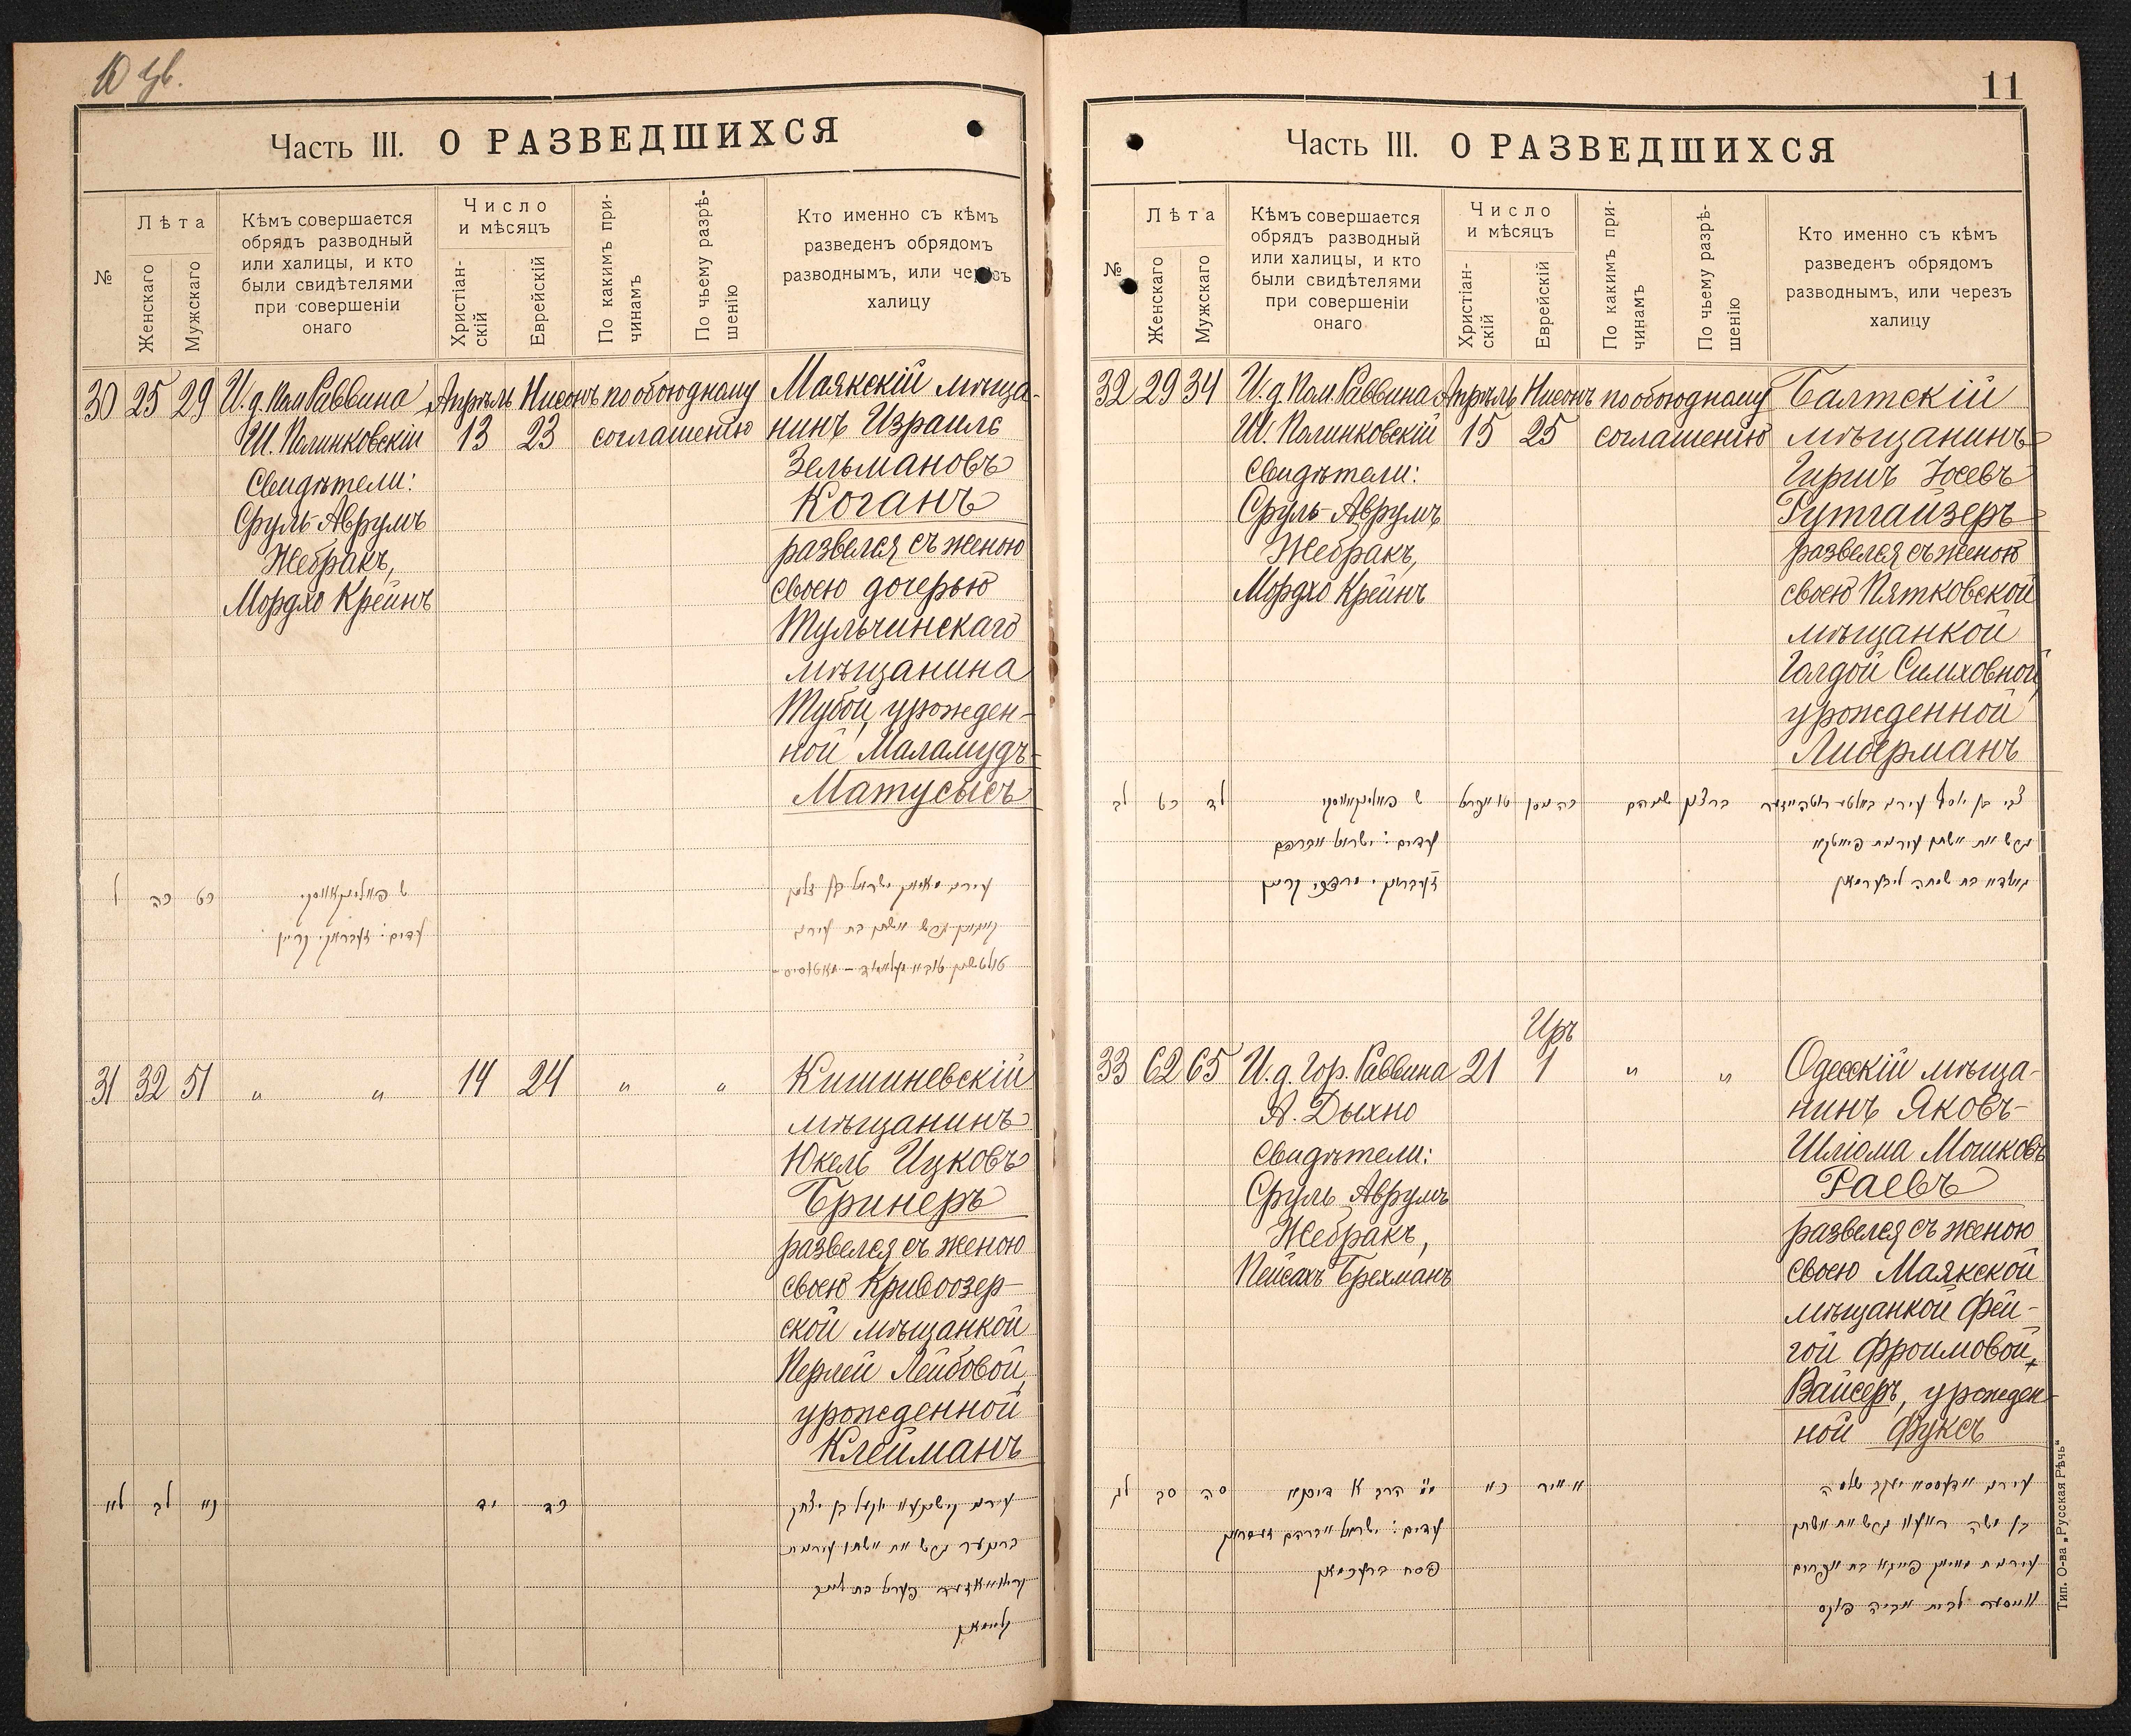 10 ув.
Часть III. О РАЗВЕДШИХСЯ
№
Лѣта
Женскаго
Мужскаго
Кѣмъ совершается
обрядъ разводный
или халицы, и кто
были свидѣтелями
при совершеніи
онаго
Число
и мѣсяцъ
Христіан-
скій
Еврейскій
По какимъ при-
чинамъ
По чьему разрѣ-
шенію
Кто именно съ кѣмъ
разведенъ обрядомъ
разводнымъ, или через
халицу
30 25 29
И. д. Пом. Раввина
Ш. Полинковскій
Свидѣтели:
Сруль-Аврумъ
Жебракъ,
Мордхо Крейнъ
Апрѣль
13
Нисонъ
23
по обоюдному
соглашенію
Маякскій мѣща-
нинъ Израиль
Зельмановъ
Коганъ
развелся съ женою
своею дочерью
Тульчинскаго
мѣщанина
Тубой, урожден-
ной Маламудъ-
Матусысъ
ל כה כט
ש פאלינקאווסקי
עדים:
31 32 51 " " 14 24 " "
Кишиневскій
мѣщанинъ
Юкель Ицковъ
Бринеръ
развелся съ женою
своею Кривоозер-
ской мѣщанкой
Перлей Лейбовой,
урожденной
Клейманъ
לא לב נא
יד כד
קליימאן
11
Часть III. О РАЗВЕДШИХСЯ
№
Лѣта
Женскаго
Мужскаго
Кѣмъ совершается
обрядъ разводный
или халицы, и кто
были свидѣтелями
при совершеніи
онаго
Число
и мѣсяцъ
Христіан-
скій
Еврейскій
По какимъ при-
чинамъ
По чьему разрѣ-
шенію
Кто именно съ кѣмъ
разведенъ обрядомъ
разводнымъ, или через
халицу
32 29 34
И. д. Пом. Раввина
Ш. Полинковскій
Свидѣтели:
Сруль-Аврумъ
Жебракъ,
Мордхо Крейнъ
Апрѣль
15
Нисонъ
25
по обоюдному
соглашенію
Балтскій
мѣщанинъ
Гиршъ Іосевъ
Гутгайзеръ
развелся съ женою
своею Пятковской
мѣщанкой
Голдой Симховной,
урожденной
Либерманъ
לב כט לד
ש פאלינקאווסקי
עדים: ישראל אברהם
גאלדא בת שמחה ליבערמאן
33 62 65
И. д. Гор. Раввина
А. Дыхно
Свидѣтели:
Сруль Аврумъ
Жебракъ,
Пейсахъ Брехманъ
21
Иръ
1
" "
Одесскій мѣща-
нинъ Яковъ-
Шліома Мошковъ
Раевъ
развелся съ женою
своею Маякской
мѣщанкой Фей-
гой Фроимовой,
Вайсеръ, урожден-
ной Фуксъ
לג סב סה
כא א אייר
עדים: ישראל אברהם
פסח ברעכמאן
Тип. О-ва „Русская Рѣчь“